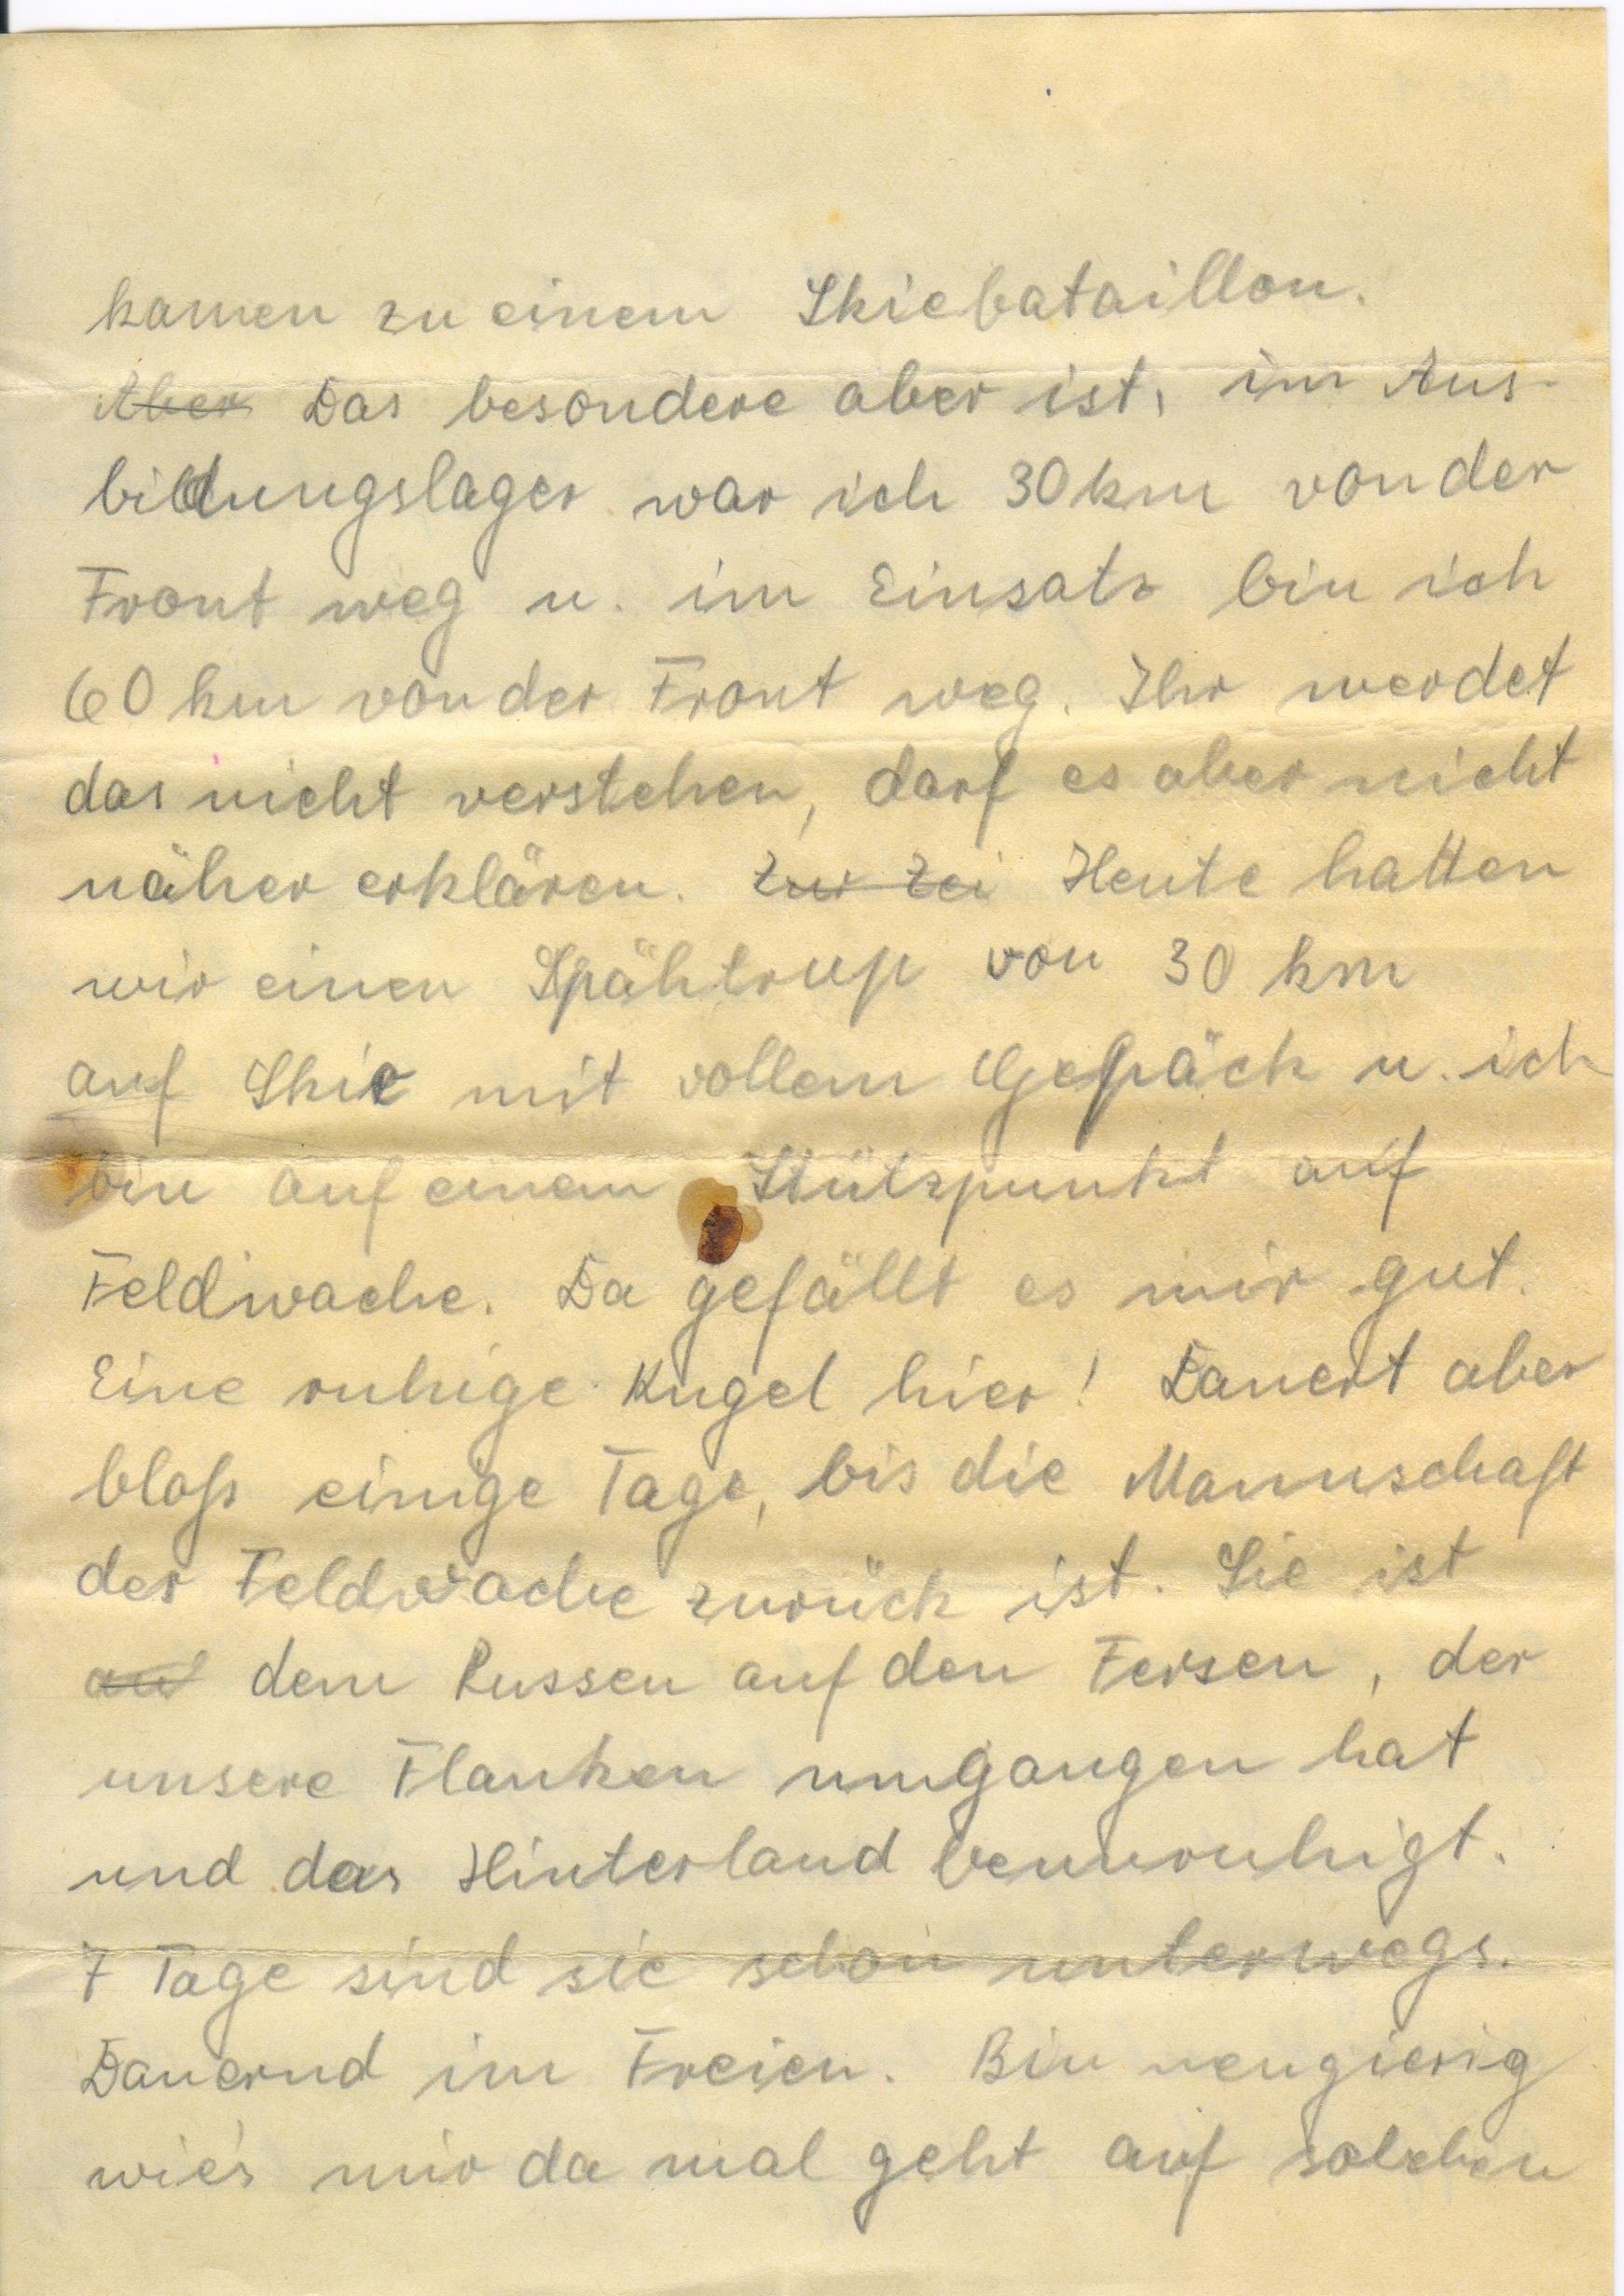 kamen zu einem Skiebataillon.
Aber Das besondere aber ist, im Aus-
bildungslager war ich 30 km von der
Front weg u. im Einsatz bin ich
60 km von der Front weg. Ihr werdet
das nicht verstehen, darf es aber nicht
näher erklären. Zur Zei Heute hatten
wir einen Spähtrup von 30 km
auf Skie mit vollem Gepäck u. ich
bin auf einem Stützpunkt auf
Feldwache. Da gefällt es mir gut.
Eine ruhige Kugel hier! Dauert aber
bloß einige Tage, bis die Mannschaft
der Feldwache zurück ist. Sie ist
auf dem Russen auf den Fersen, der
unsere Flanken umgangen hat
und das Hinterland beunruhigt.
7 Tage sind sie schon unterwegs.
Dauernd im Freien. Bin neugierig
wie's mir da mal geht auf solchen